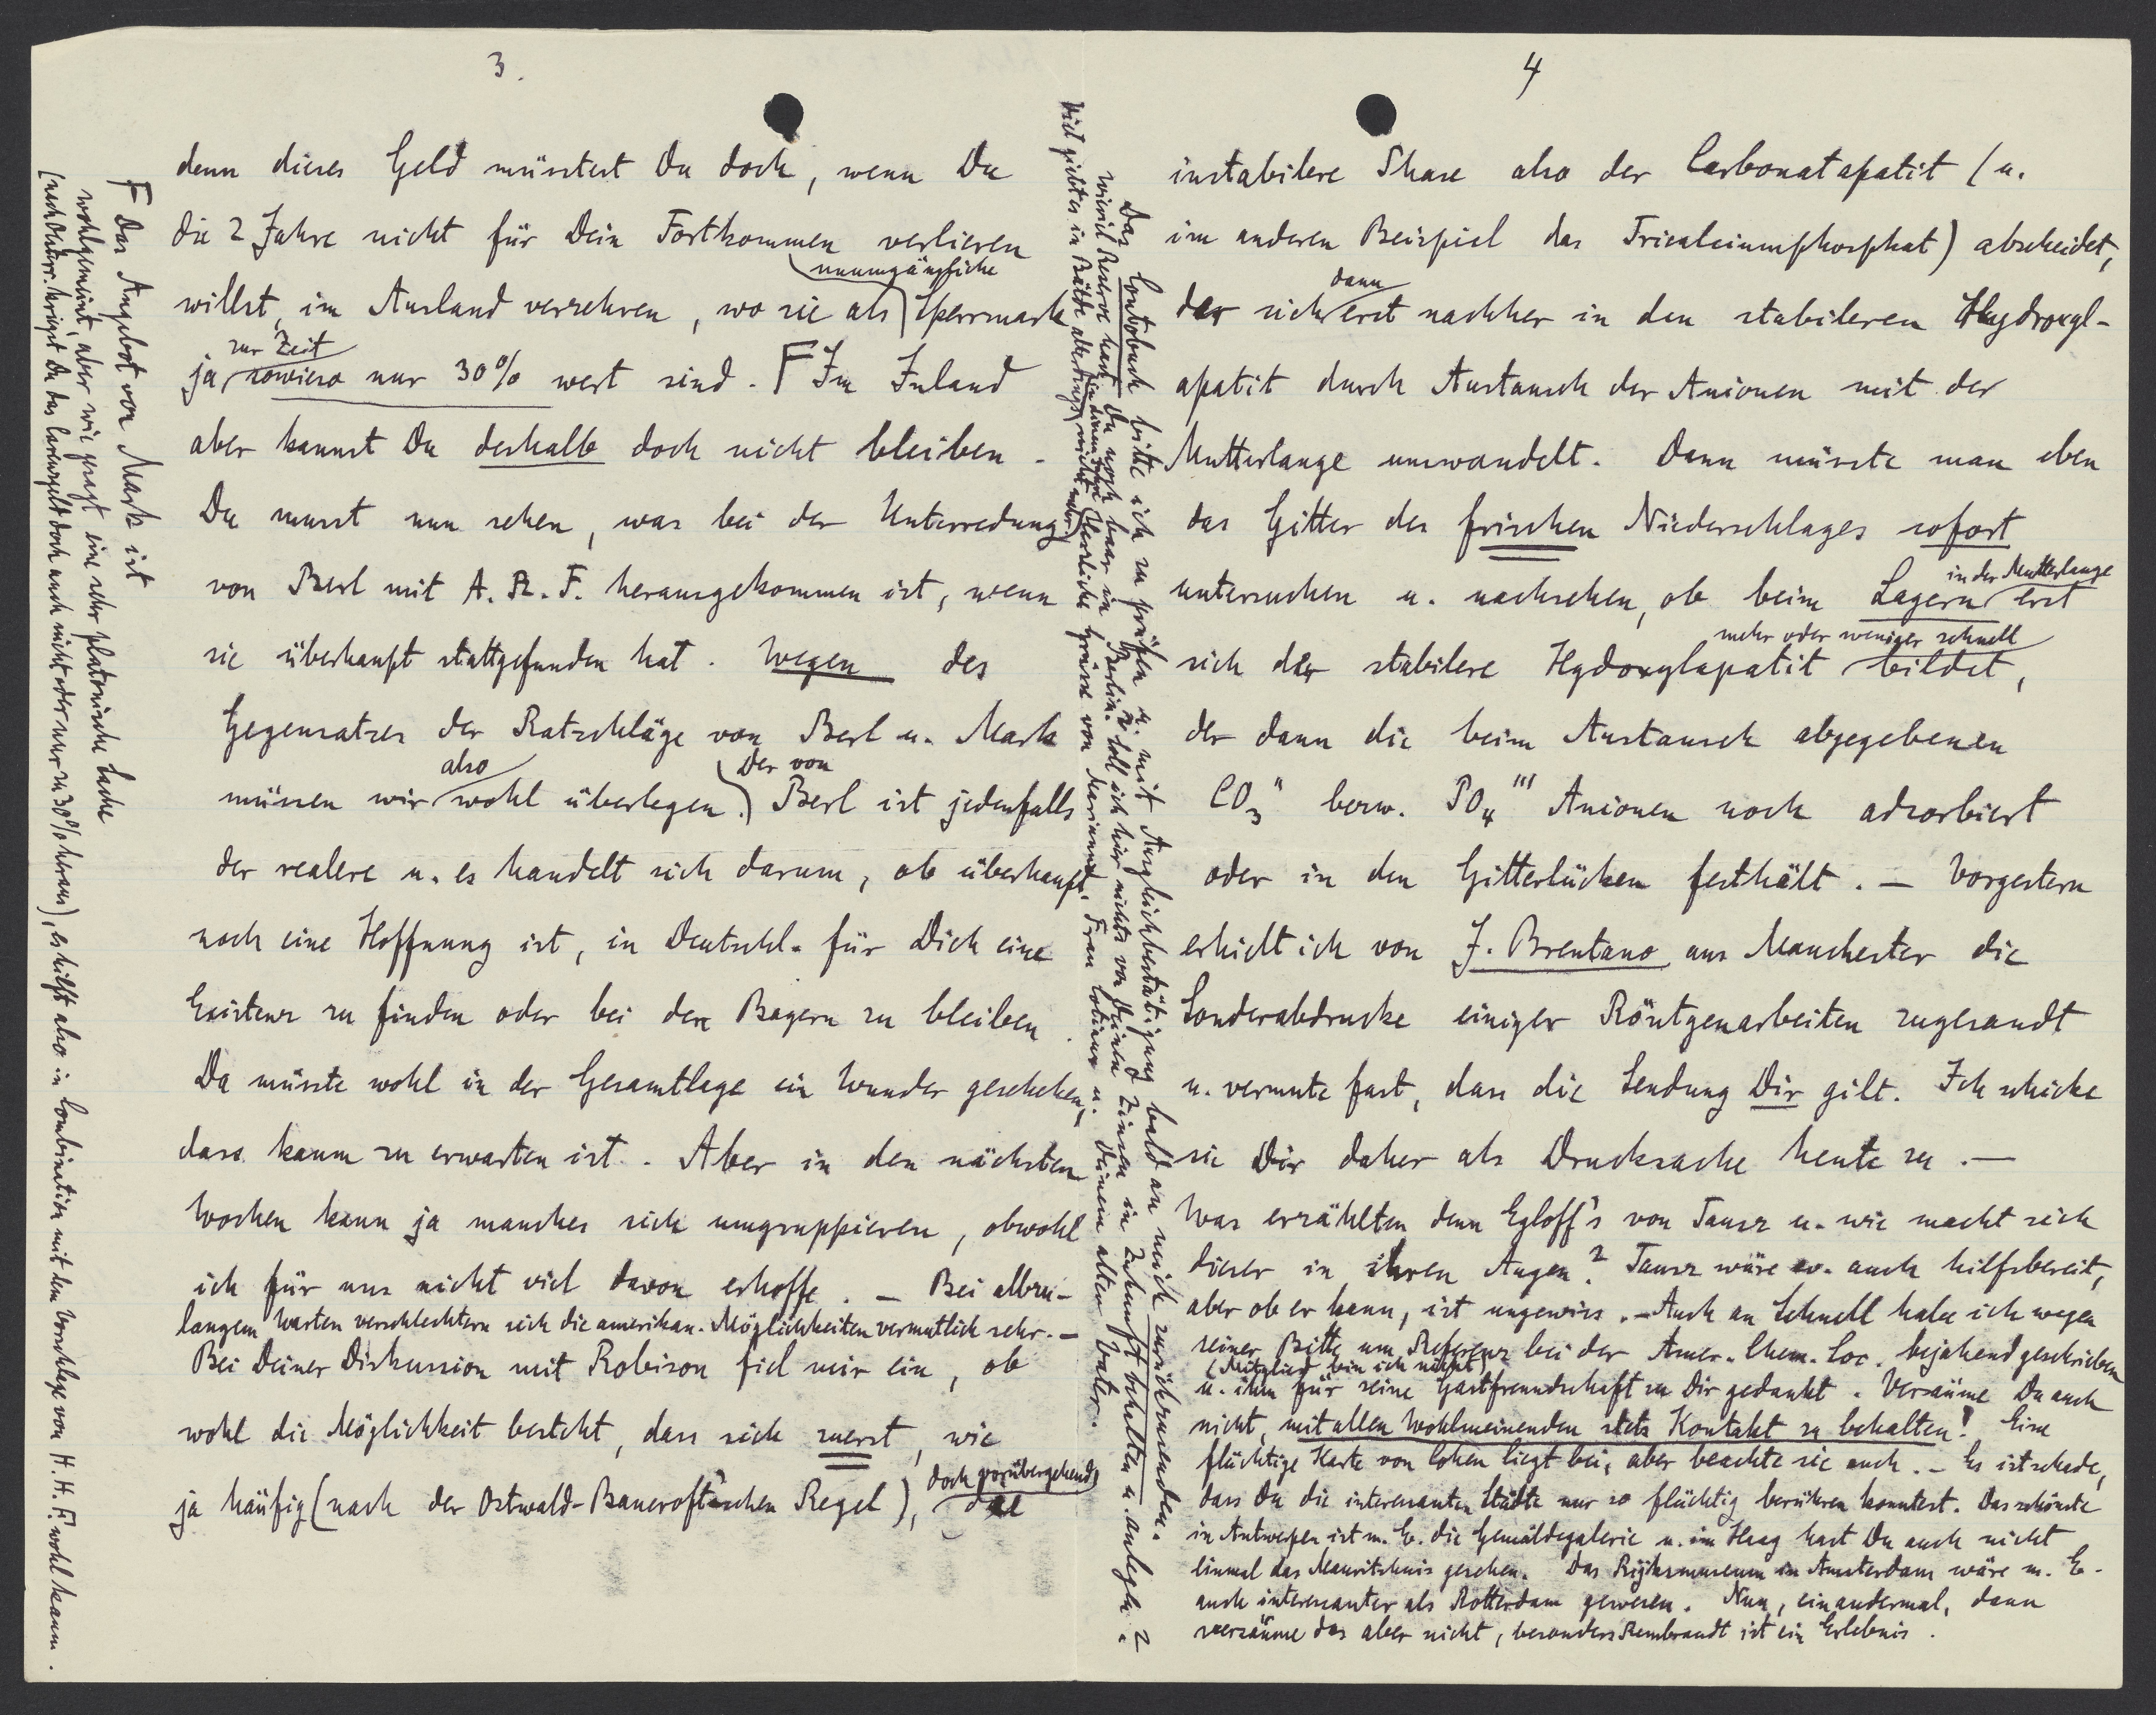 3.
denn dieses Geld müsstest Du doch, wenn Du
die 2 Jahre nicht für Dein Fortkommen verlieren
willst, im Ausland verzehren, wo sie als unumgängliche Sperrmark
ja zur Zeit sowieso nur 30% wert sind. F Im Inland
aber kannst Du deshalb doch nicht bleiben.
Du musst nun sehen, was bei der Unterredung
von Berl mit A. R. F. herausgekommen ist, wenn
sie überhaupt stattgefunden hat. Wegen des
Gegensatzes der Ratschläge von Berl u. Mark
müssen wir also wohl überlegen. Der von Berl ist jedenfalls
der realere u. es handelt sich darum, ob überhaupt
noch eine Hoffnung ist, in Deutschl. für Dich eine
Existenz zu finden oder bei den Bayern zu bleiben.
Da müsste wohl in der Gesamtlage ein Wunder geschehen,
dass kaum zu erwarten ist. Aber in den nächsten
Wochen kann ja manches sich umgruppieren, obwohl
ich für uns nicht viel davon erhoffe. — Bei allzu-
langem Warten verschlechtern sich die amerikan. Möglichkeiten vermutlich sehr. —
Bei Deiner Diskussion mit Robison fiel mir ein, ob
wohl die Möglichkeit besteht, dass sich zuerst, wie
ja häufig (nach der Ostwald-Bancroft'schen Regel), doch vorübergehend die
F Das Angebot von Mark ist
wohlgemeint, aber wie gesagt eine sehr platonische Sache
(nach Österr. kriegst Du das Geld doch auch nicht oder nur zu 30% heraus), es hilft also in Combination mit dem Vorschlage von H. H. F. wohl kaum.
4
instabilere Phase also der Carbonatapatit (u.
im anderen Beispiel das Tricalciumphosphat) abscheidet,
der sich dann erst nachher in den stabileren Hydroxyl-
apatit durch Austausch der Anionen mit der
Mutterlauge umwandelt. Dann müsste man eben
das Gitter des frischen Niederschlages sofort
untersuchen u. nachsehen, ob beim Lagern in der Mutterlauge erst
sich der stabilere Hydoxylapatit mehr oder weniger schnell bildet,
der dann die beim Austausch abgegebenen
CO₃" bezw. PO₄''' Anionen noch adsorbiert
oder in den Gitterlücken festhält. — Vorgestern
erhielt ich von J. Brentano aus Manchester die
Sonderabdrucke einiger Röntgenarbeiten zugesandt
u. vermute fast, dass die Sendung Dir gilt. Ich schicke
sie Dir daher als Drucksache heute zu. —
Was erzählten denn Egloff's von Tausz u. wie macht sich
dieser in ihren Augen? Tausz wäre ev. auch hilfsbereit,
aber ob er kann, ist ungewiss. — Auch an Schnell habe ich wegen
seiner Bitte um Referenz bei der Amer. Chem. Soc. bejahend geschrieben
(Mitglied bin ich nicht)
u. ihm für seine Gastfreundschaft zu Dir gedankt. Versäume Du auch
nicht, mit allen Wohlmeinenden stets Kontakt zu behalten! Eine
flüchtige Karte von Cohen liegt bei, aber beachte sie auch. — Es ist schade,
dass Du die interessanten Städte nur so flüchtig berühren konntest. Das schönste
in Antwerpen ist m. E. die Gemäldegalerie u. im Haag hast Du auch nicht
einmal das Mauritshuis gesehen. Das Rijksmuseum in Amsterdam wäre m. E.
auch interessanter als Rotterdam gewesen. Nun, ein andermal, dann
versäume das aber nicht, besonders Rembrandt ist ein Erlebnis.
Das Contobuch bitte ich zu prüfen u. mit Ausgleichbestätigung bald an mich zurückzusenden.
Wieviel Reserve hast Du noch baar in Berlin? Soll ich hier nichts von Deinen Zinsen in Zukunft behalten u. anlegen?
Viel giebt es in Bälde allerdings nicht mehr. Herzliche Grüsse von Marianne, Frau u. Deinem alten Vater.